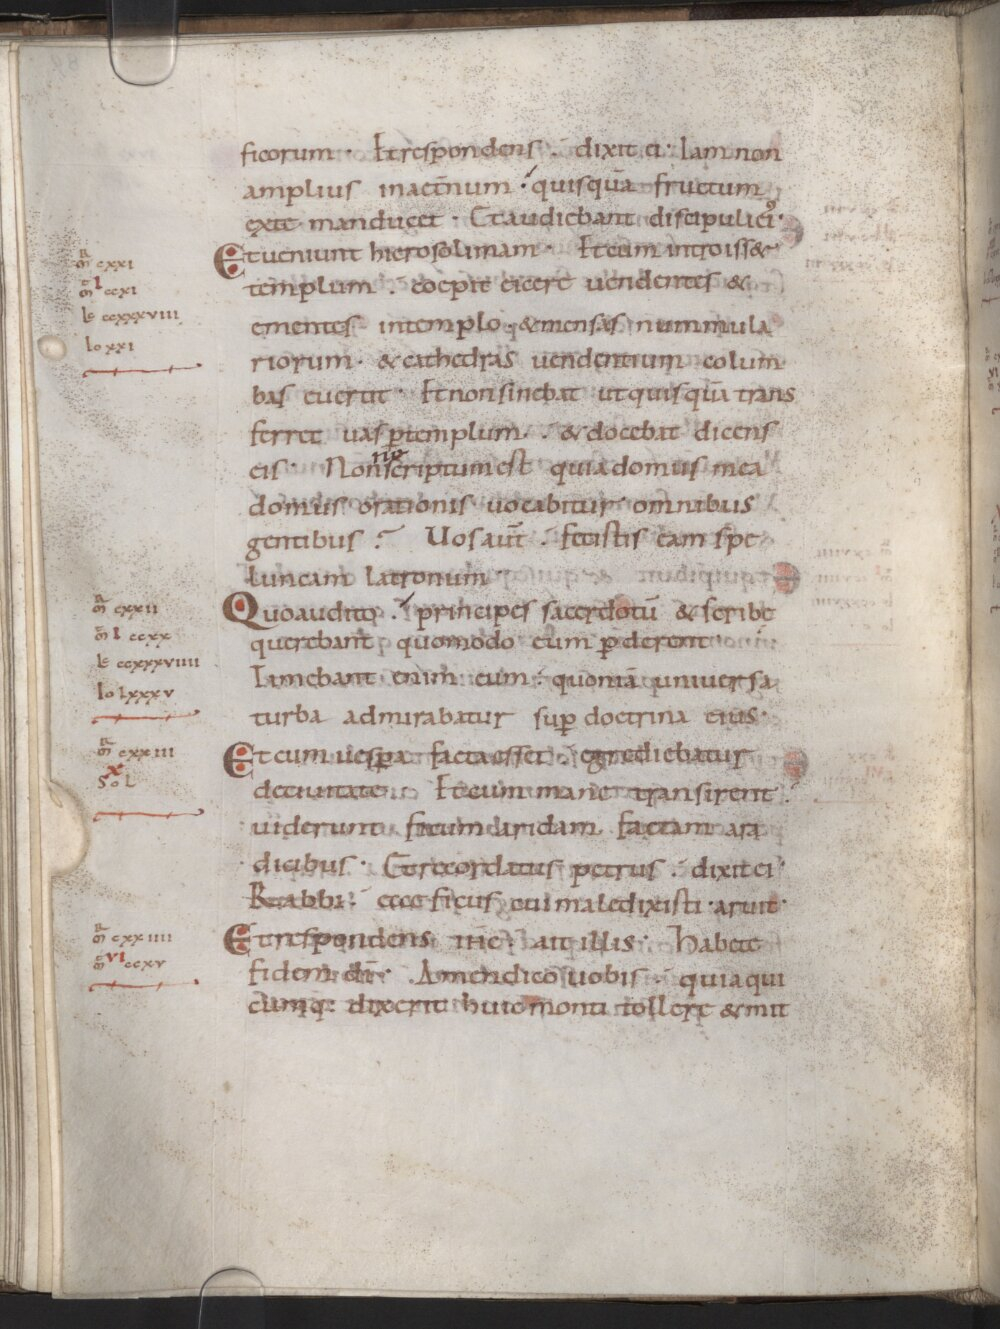 ficorum · Et respondens · dixit ei · Iam non
amplius inaet̄num · quisquā fructum
exte manducet · Et audiebant discipuli ei⁹ ·
Et ueniunt hierosolimam · Et cum introiss&
templum · coepit eicere uendentes &
ementes intemplo · & mensas nummula
riorum · & cathedras uendentium colum
bas euertit · Et non sinebat ut quisquā trans
ferret uas ꝑ templum · & docebat dicens
eis · Non ne scriptum est quia domus mea
domus orationis uocabitur omnibus
gentibus ? Uos aūt · fecistis eam spe
luncam latronum
Quo audito · principes sacerdotū & scribe
querebant quomodo eum ꝑderent ·
Timebant enim eum · quoniā uniuersa
turba admirabatur suꝑ doctrina eius ·
Et cum uesꝑa facta esset · egrediebatur
deciuitate · Et cum mane transirent ·
uiderunt ficum aridam factam ara
dicibus · Et recordatus petrus · dixit ei ·
Rabbi · ecce ficus cui maledixisti · aruit ·
Et respondens ih̄c · ait illis · Habete
fidem dī · Amen dico uobis · quia qui
cumq: dixerit huic monti tollere & mit
m̄r cxxi
m̄ I ccxi
lc ccxxxviii
Io xxi
m̄r cxxii
m̄ I ccxx
lc ccxxxviiii
Io lxxxv
m̄r cxxiii
X
SoL
m̄r cxxiiii
m̄ VI ccxv